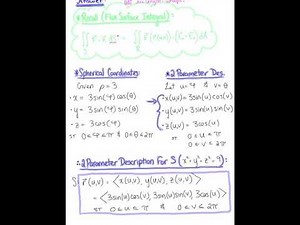 Answer
*Recall (Flux Surface Integral):
*Spherical Coordinates:
Given ρ = 3
-x = 3sin(φ)cos(θ)
-y = 3sin(φ)sin(θ)
-z = 3cos(φ)
π 0≤φ≤π & 0≤θ≤2π
*2 Parameter Des.
Let u=φ & v=θ
-x(u,v) = 3sin(u)cos(v)
-y(u,v) = 3sin(u)sin(v)
-z(u,v) = 3cos(u)
π 0≤u≤π
& 0≤v≤2π
∴ 2 Parameter Description For S (x²+y²+z²=9):
r(u,v) = <x(u,v), y(u,v), z(u,v)>
= <3sin(u)cos(v), 3sin(u)sin(v), 3cos(u)>
π 0≤u≤π & 0≤v≤2π